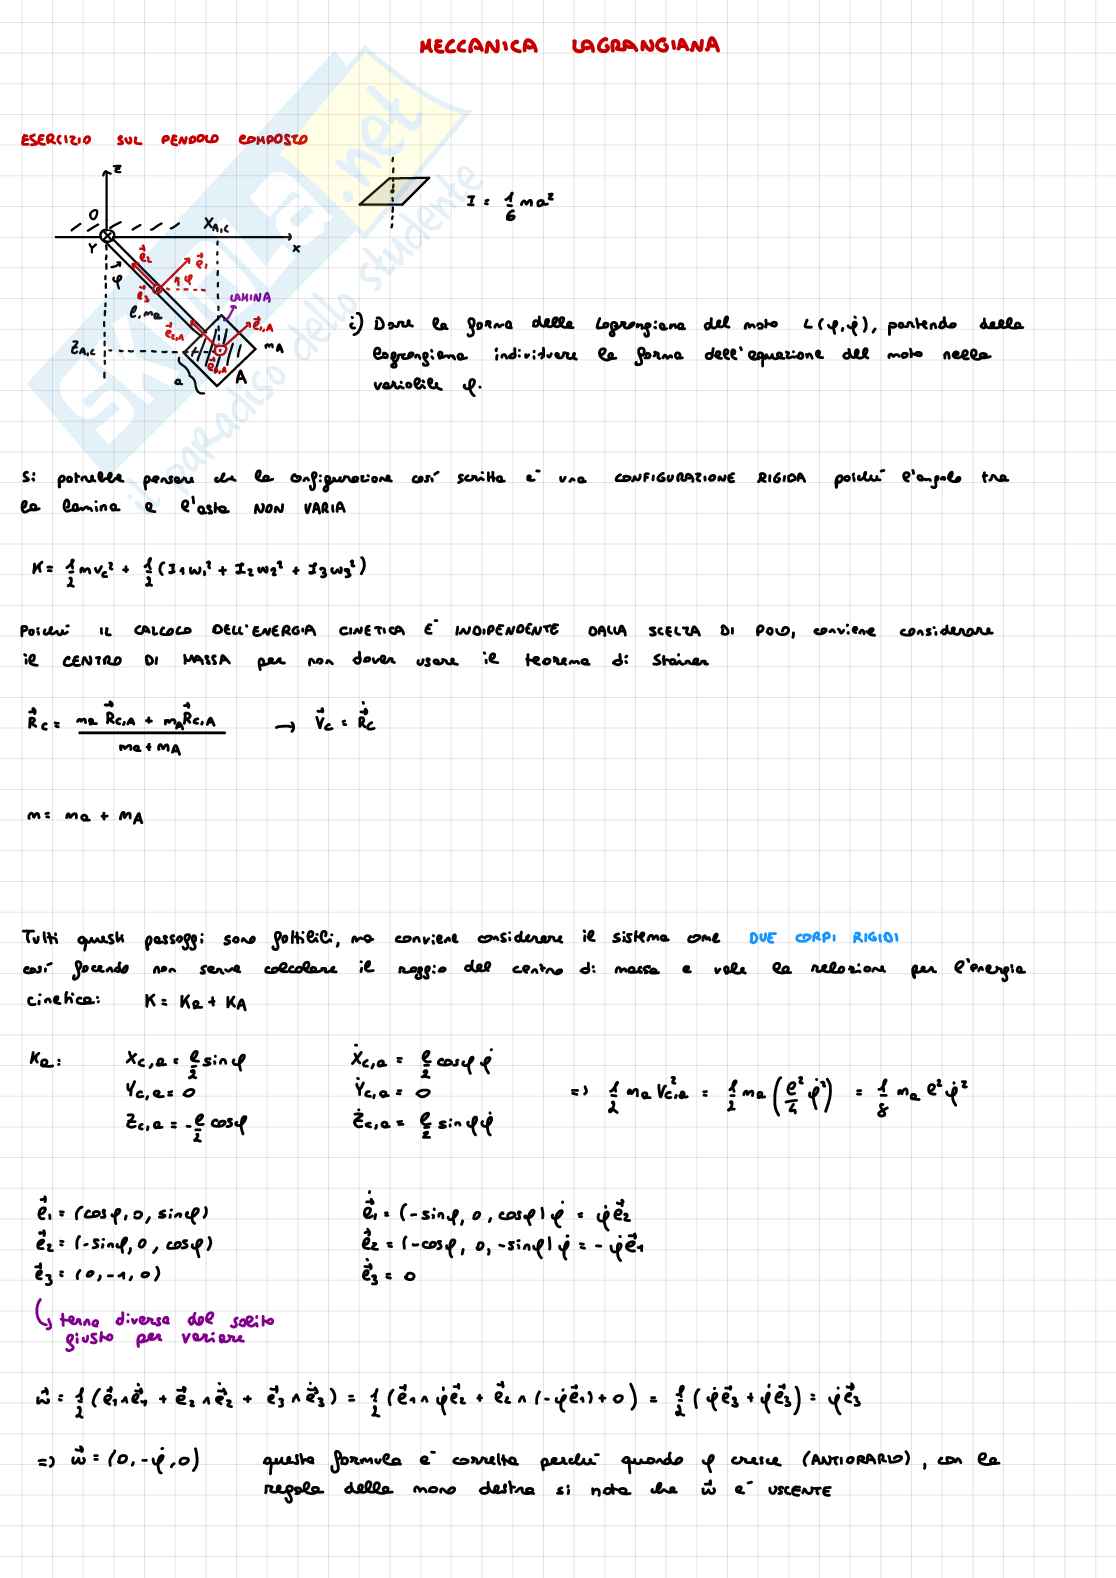 MECCANICA LAGRANGIANA
ESERCIZIO SUL PENDOLO COMPOSTO
SKUOLA.net
il paradiso dello studente
z
O
Y
x
X_{A,C}
φ
e⃗_2
e⃗_1
φ
e⃗_3
l, m_a
LAMINA
e⃗_{2,A}
e⃗_{1,A}
Z_{A,C}
m_A
a
A
I = 1/6 m a²
i) Dare la forma della Lagrangiana del moto L(φ,φ̇), partendo della
Lagrangiana individuare la forma dell'equazione del moto nella
variabile φ.
Si potrebbe pensare che la configurazione così scritta è una CONFIGURAZIONE RIGIDA poiché l'angolo tra
la lamina e l'asta NON VARIA
K = 1/2 m v_c² + 1/2 (I_1 ω_1² + I_2 ω_2² + I_3 ω_3²)
Poiché IL CALCOLO DELL'ENERGIA CINETICA È INDIPENDENTE DALLA SCELTA DI POLO, conviene considerare
il CENTRO DI MASSA per non dover usare il teorema di Stainer
R⃗_C = (m_a R⃗_{C,A} + m_A R⃗_{C,A}) / (m_a + m_A) → V⃗_C = Ṙ⃗_C
m = m_a + m_A
Tutti questi passaggi sono fattibili, ma conviene considerare il sistema come DUE CORPI RIGIDI
così facendo non serve calcolare il raggio del centro di massa e vale la relazione per l'energia
cinetica: K = K_a + K_A
K_a: X_{C,a} = l/2 sinφ Ẋ_{C,a} = l/2 cosφ φ̇
Y_{C,a} = 0 Ẏ_{C,a} = 0 => 1/2 m_a V²_{C,a} = 1/2 m_a (l²/4 φ̇²) = 1/8 m_a l² φ̇²
Z_{C,a} = -l/2 cosφ Ż_{C,a} = l/2 sinφ φ̇
e⃗_1 = (cosφ, 0, sinφ) ė⃗_1 = (-sinφ, 0, cosφ) φ̇ = φ̇ e⃗_2
e⃗_2 = (-sinφ, 0, cosφ) ė⃗_2 = (-cosφ, 0, -sinφ) φ̇ = -φ̇ e⃗_1
e⃗_3 = (0, -1, 0) ė⃗_3 = 0
↳ terna diversa dal solito
giusto per variare
ω⃗ = 1/2 (e⃗_1 ∧ ė⃗_1 + e⃗_2 ∧ ė⃗_2 + e⃗_3 ∧ ė⃗_3) = 1/2 (e⃗_1 ∧ φ̇ e⃗_2 + e⃗_2 ∧ (-φ̇ e⃗_1) + 0) = 1/2 (φ̇ e⃗_3 + φ̇ e⃗_3) = φ̇ e⃗_3
=> ω⃗ = (0, -φ̇, 0) questa formula è corretta perché quando φ cresce (ANTIORARIO), con la
regola della mano destra si nota che ω⃗ è USCENTE